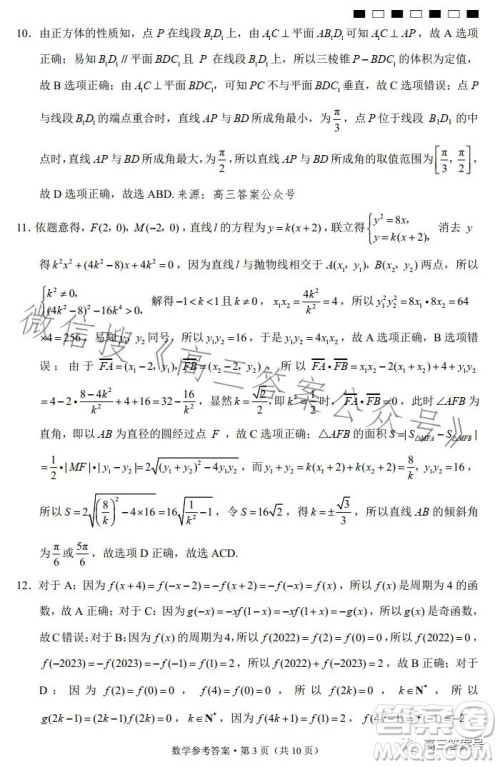 10．由正方体的性质知，点 P 在线段 B₁D₁ 上，由 A₁C⊥平面 AB₁D₁ 可知 A₁C⊥AP，故 A 选项
正确；易知 B₁D₁∥平面 BDC₁ 且 P 在线段 B₁D₁ 上，所以三棱锥 P－BDC₁ 的体积为定值，
故 B 选项正确；由 A₁C⊥平面 BDC₁，可知 PC 不与平面 BDC₁ 垂直，故 C 选项错误；点 P
与线段 B₁D₁ 的端点重合时，直线 AP 与 BD 所成角最小，为 π/3，点 P 位于线段 B₁D₁ 的中
点时，直线 AP 与 BD 所成角最大，为 π/2，所以直线 AP 与 BD 所成角的取值范围为[π/3，π/2]，
故 D 选项正确，故选 ABD．来源：高三答案公众号
11．依题意得，F(2, 0)，M(−2, 0)，直线 l 的方程为 y=k(x+2)，联立得{y²=8x, y=k(x+2), 消去 y
得 k²x²+(4k²−8)x+4k²=0，因为直线 l 与抛物线相交于 A(x₁, y₁)，B(x₂, y₂) 两点，所以
{k²≠0, (4k²−8)²−16k⁴>0, 解得 −1<k<1 且 k≠0，x₁x₂=4k²/k²=4，所以 y₁²y₂²=8x₁•8x₂=64
×4=256，易知 y₁ y₂ 同号，所以 y₁y₂=16，于是 y₁y₂=4x₁x₂，故 A 选项正确，B 选项错
误；由于 FA=(x₁−2, y₁)，FB=(x₂−2, y₂)，所以 FA•FB=x₁x₂−2(x₁+x₂)+4+y₁y₂
=4−2•(8−4k²)/k²+4+16=32−16/k²，显然 k=√2/2，即 k²=1/2 时，FA•FB=0，此时∠AFB 为
直角，即以 AB 为直径的圆经过点 F，故 C 选项正确；△AFB 的面积 S=|S△MFA−S△MFB|
=1/2•|MF|•|y₁−y₂|=2√((y₁+y₂)²−4y₁y₂)，而 y₁+y₂=k(x₁+2)+k(x₂+2)=8/k，y₁y₂=16，
所以 S=2√((8/k)²−4×16)=16√(1/k²−1)，令 S=16√2，得 k=±√3/3，所以直线 AB 的倾斜角
为 π/6 或 5π/6，故选项 D 正确，故选 ACD．
12．对于 A：因为 f(x+4)=f(−x−2)=−f(x+2)=−f(−x)=f(x)，所以 f(x) 是周期为 4 的函
数，故 A 正确；对于 C：因为 g(−x)=−xf(−x−1)=xf(x+1)=−g(x)，所以 g(x) 是奇函数，
故 C 错误；对于 B：因为 f(x) 的周期为 4，所以 f(2022)=f(2)=f(0)=0，所以 f(2022)=0，
f(−2023)=−f(2023)=−f(−1)=f(1)=2，所以 f(2022)+f(−2023)=2，故 B 正确；对于
D：因为 f(2)=f(0)=0，所以 f(4)=f(0)=0，所以 f(2k)=0，k∈N*，所以
g(2k−1)=(2k−1)f(2k)=0，k∈N*，因为 f(4k+1)=f(1)=2，k∈N*，f(4k−1)=f(−1)=−2，
数学参考答案·第 3 页（共 10 页）
微信搜《高三答案公众号》
高三答案号